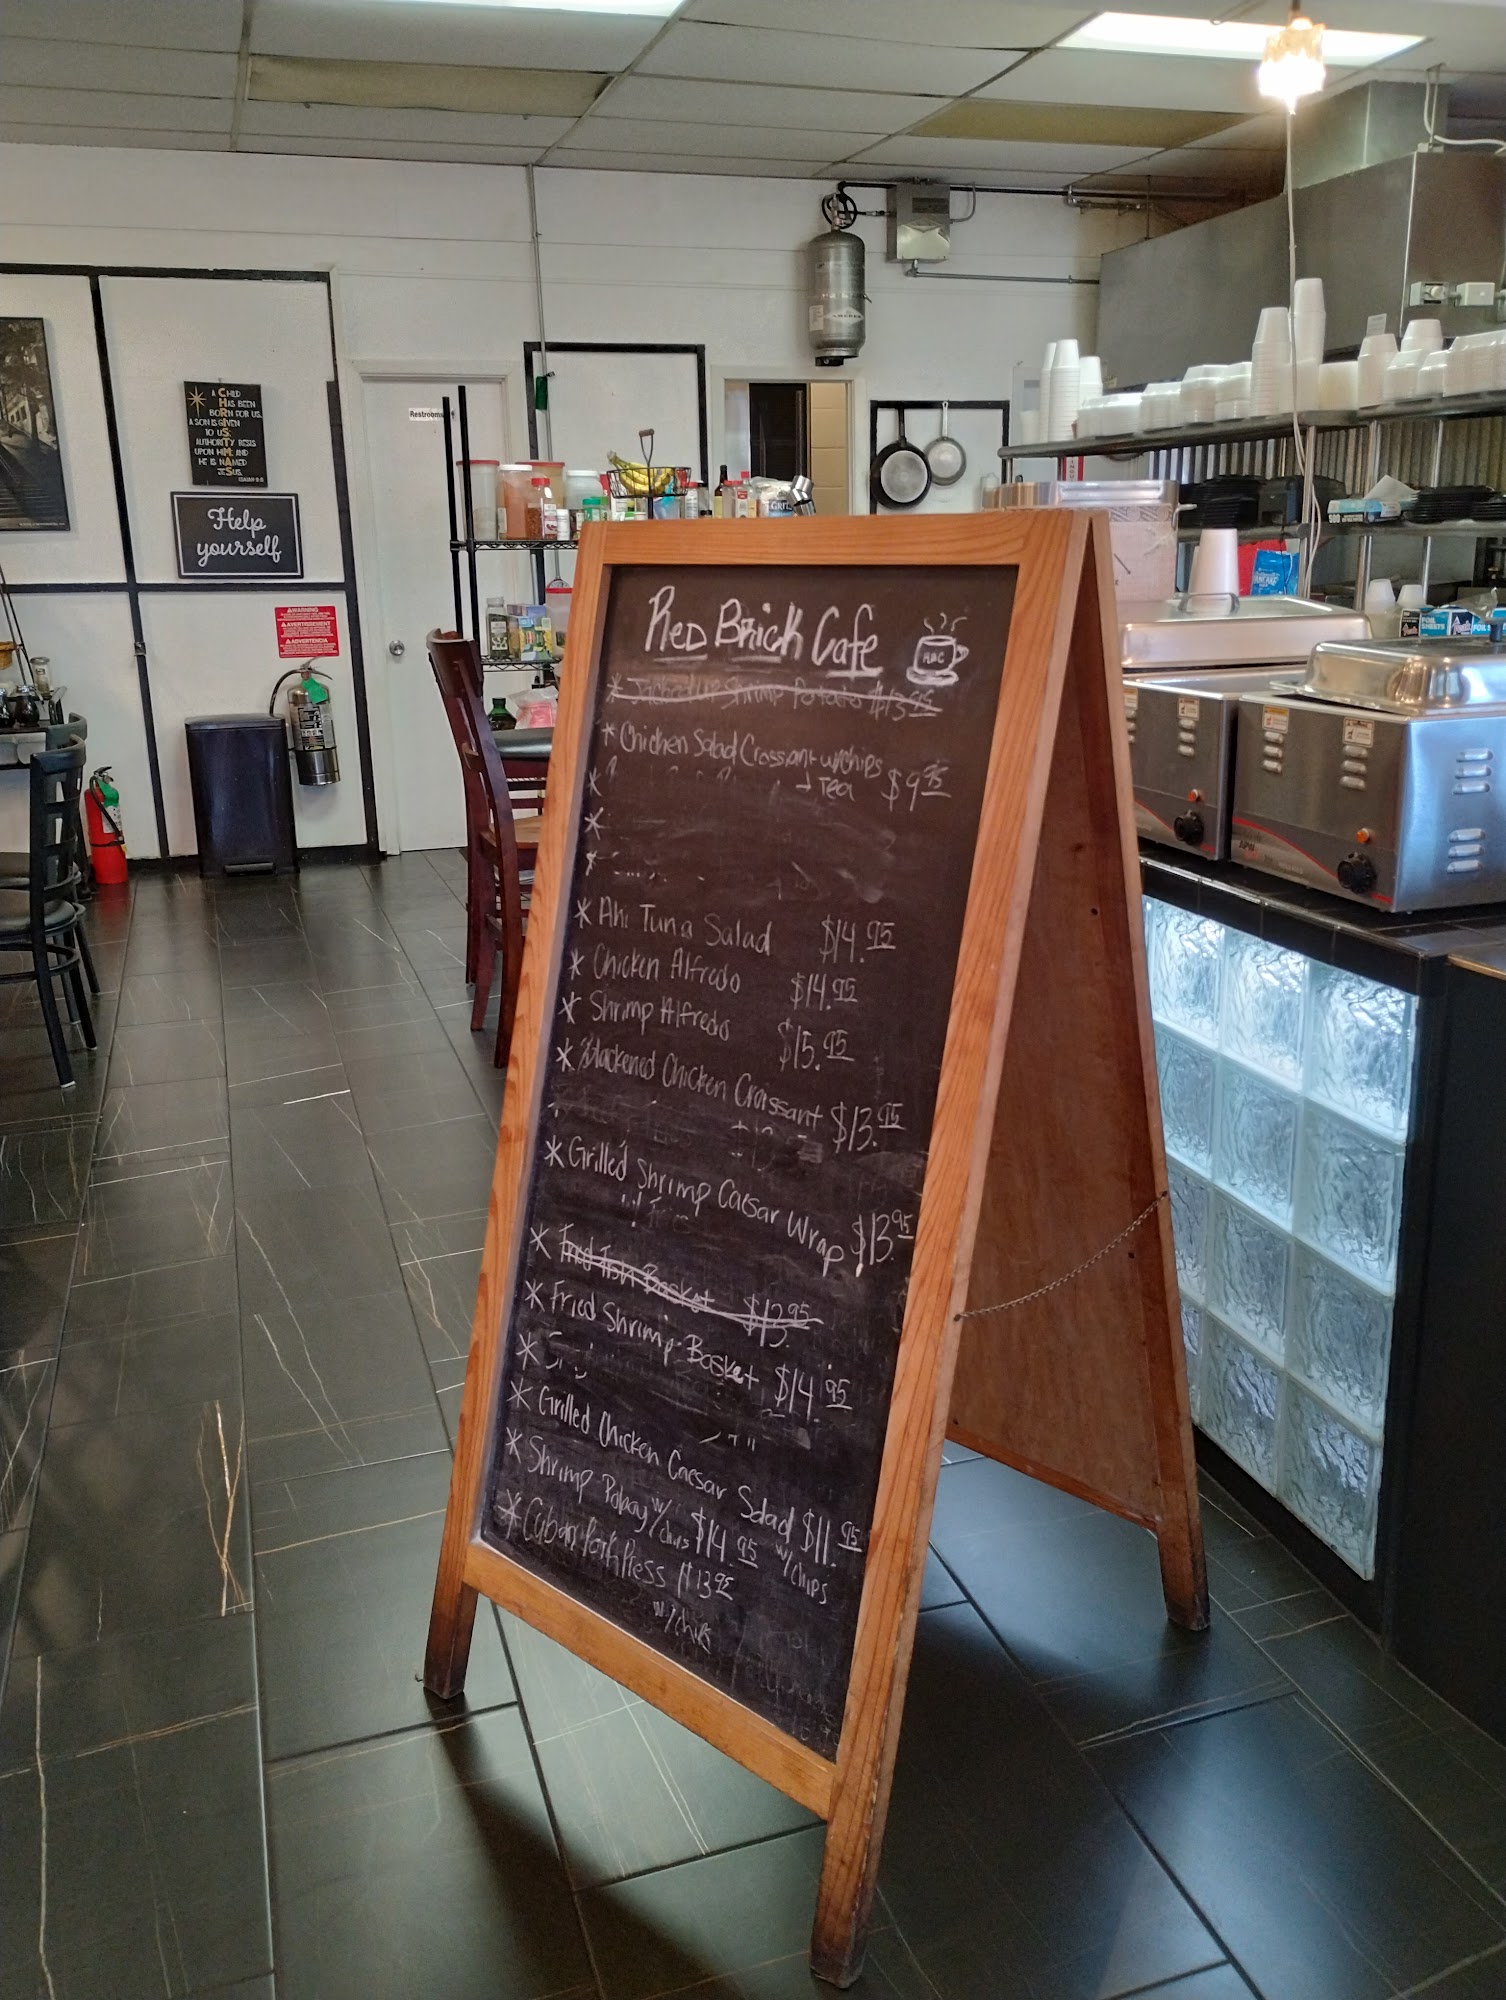 Restrooms
A CHILD
HAS BEEN
BORN FOR US.
A SON IS GIVEN
TO US;
AUTHORITY RESTS
UPON HIM; AND
HE IS NAMED
JESUS.
ISAIAH 9:6
Help
yourself
WARNING
AVERTISSEMENT
ADVERTENCIA
Red Brick Cafe
RBC
* Jacked up Shrimp Potato $13.95
* Chicken Salad Croissant w/chips
+ Tea $9.95
*
*
* Ahi Tuna Salad $14.95
* Chicken Alfredo $14.95
* Shrimp Alfredo $15.95
* Blackened Chicken Croissant $13.95
* Grilled Shrimp Caesar Wrap $13.95
* Fried Fish Basket $13.95
* Fried Shrimp Basket $14.95
*
* Grilled Chicken Caesar Salad $11.95
w/chips
* Shrimp Poboy w/chips $14.95
* Cuban Pork Press $13.95
w/chips
FOIL
SHEETS
500
APW